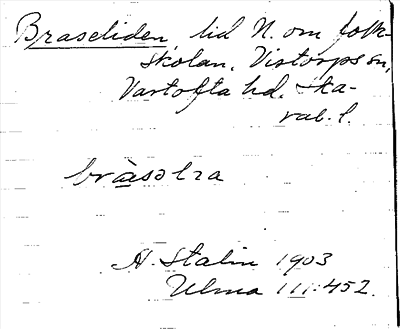 Braseliden lid N. om folk-
skolan. Vistorps sn,
Vartofta hd. Ska-
rab. l.
bràsəlɩa
A. Stalin 1903
Ulma 111:452.